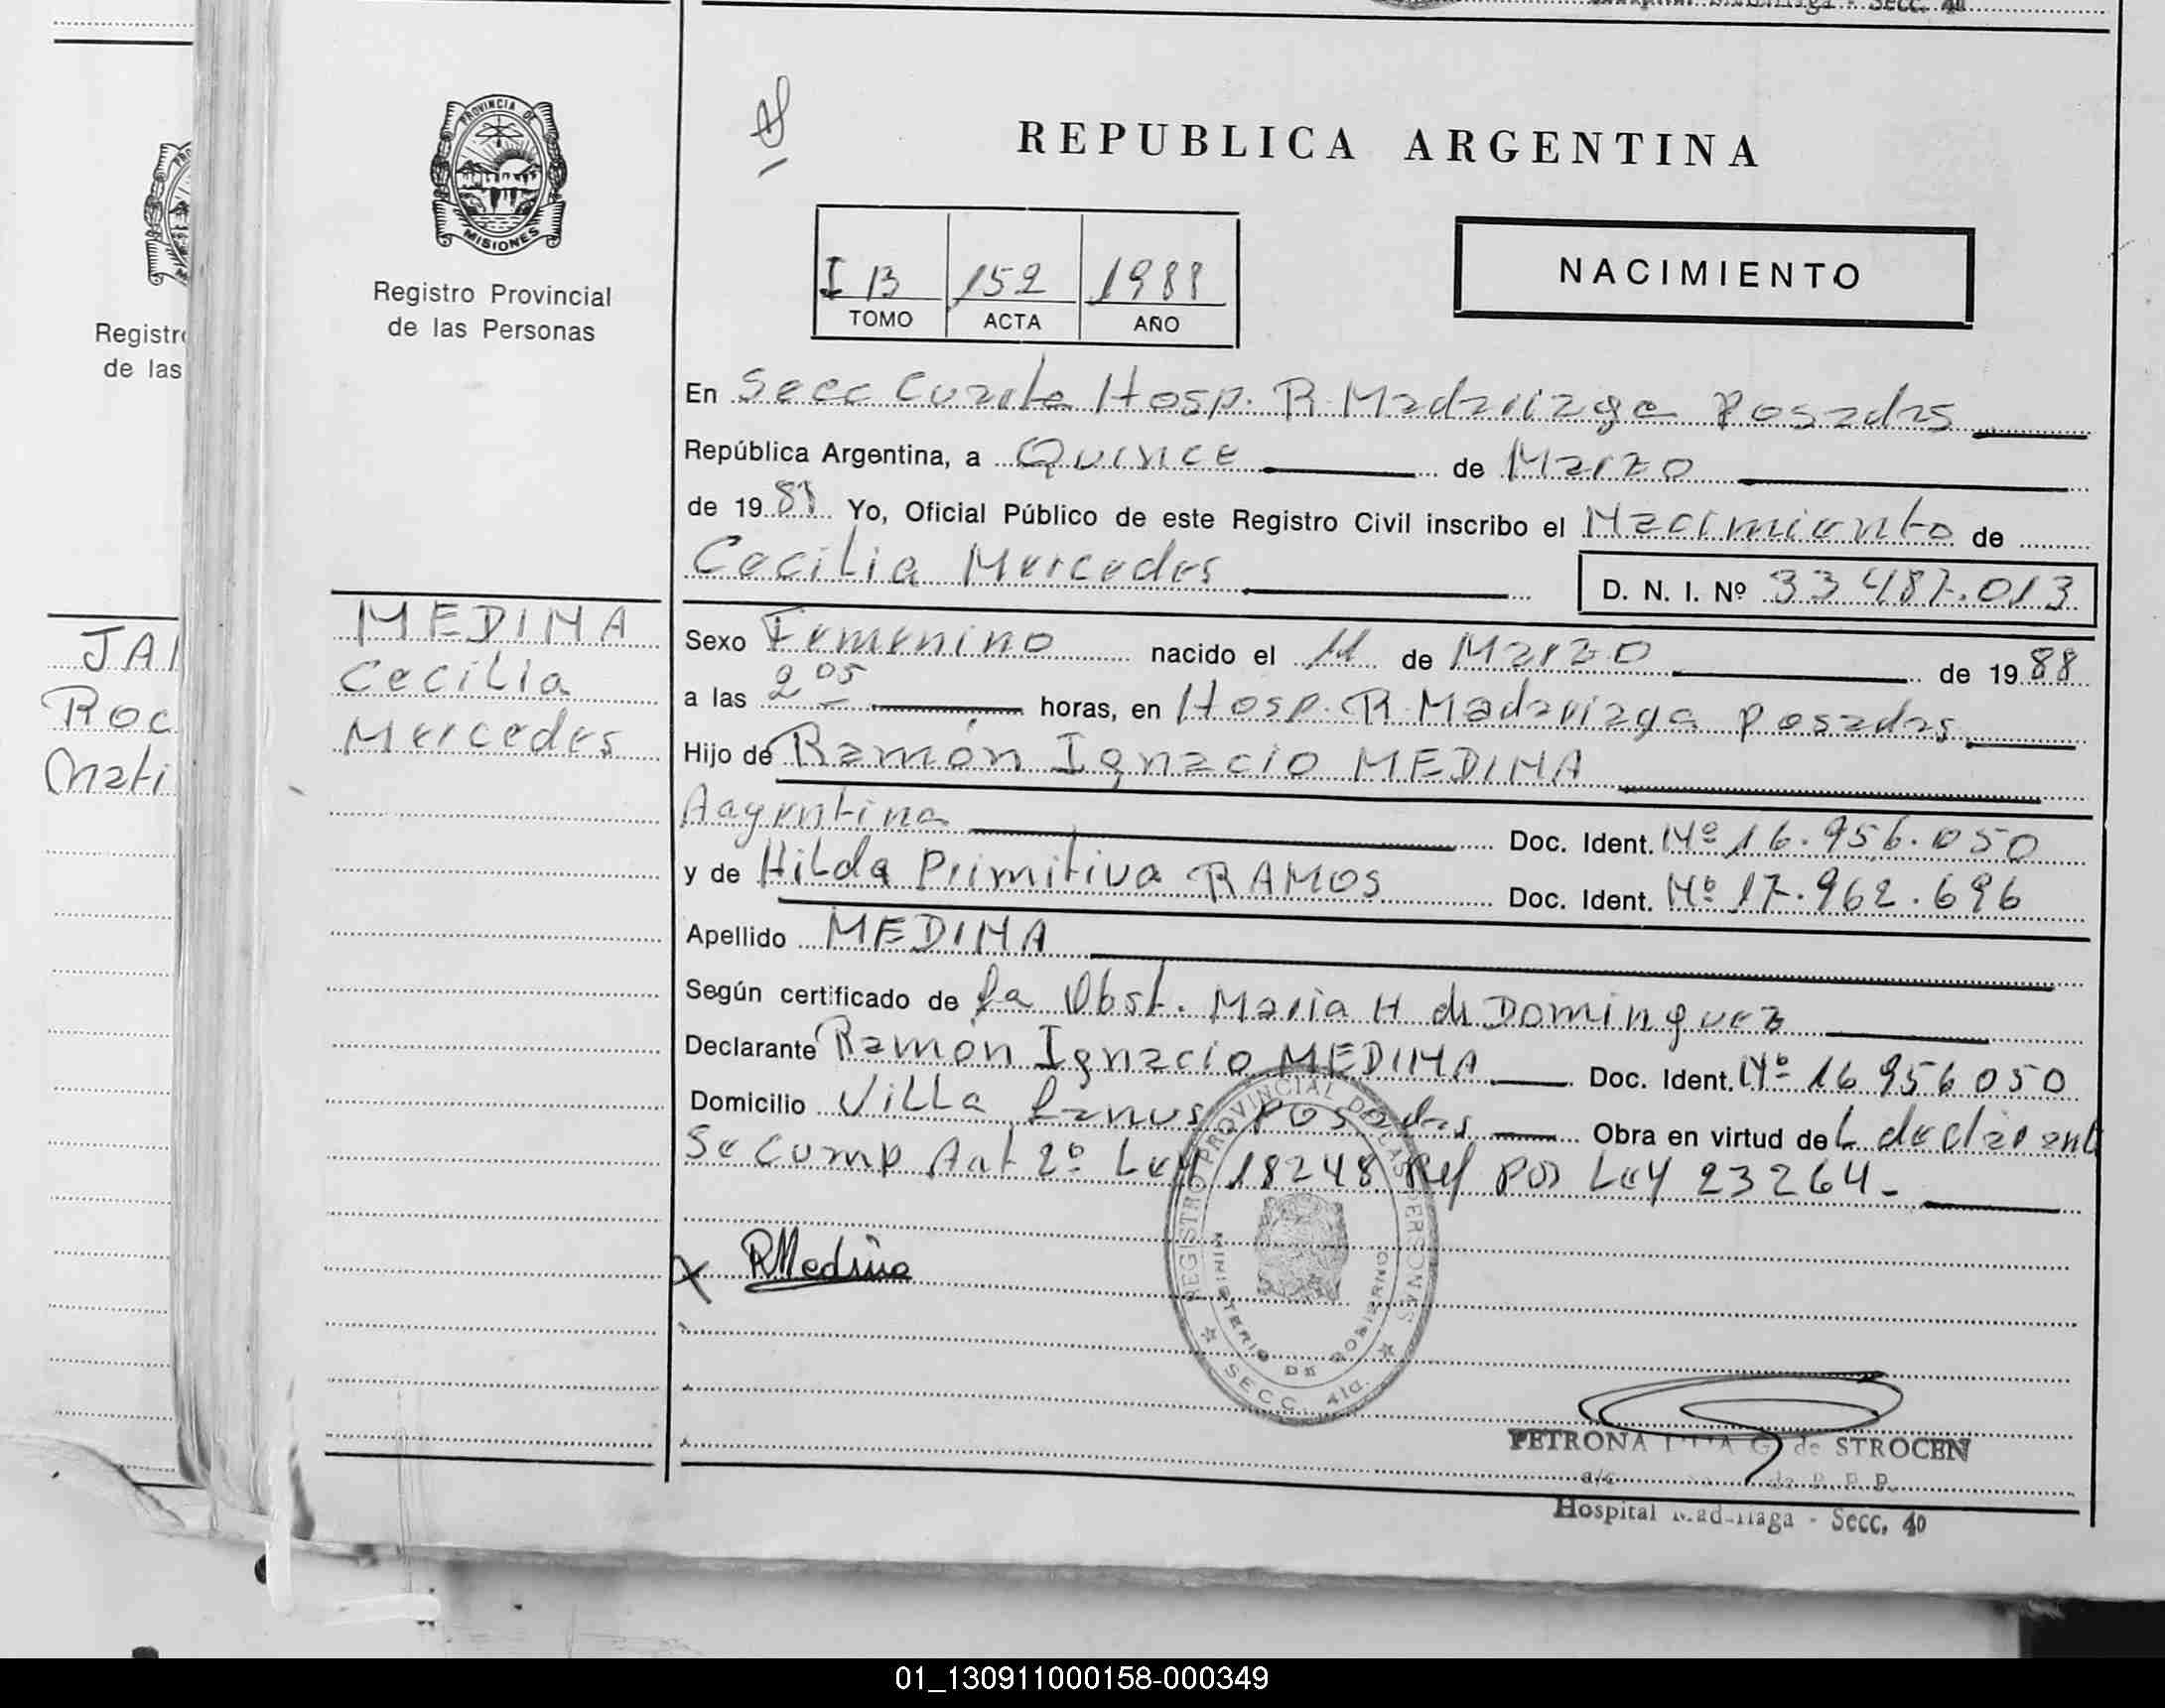 Hospital Madariaga - Secc. 40
PROVINCIA DE
MISIONES
Registro Provincial
de las Personas
Registr
de las
JAI
Roc
Mati
MEDINA
Cecilia
Mercedes
REPUBLICA ARGENTINA
I B 152 1988
TOMO ACTA AÑO
NACIMIENTO
En Secc Cuarta Hosp. R Madariaga Posadas
República Argentina, a Quince de Marzo
de 1988 Yo, Oficial Público de este Registro Civil inscribo el Nacimiento de
Cecilia Mercedes D. N. I. Nº 33 487.013
Sexo Femenino nacido el 11 de Marzo de 1988
a las 2 05 horas, en Hosp. R Madariaga Posadas
Hijo de Ramón Ignacio MEDINA
Aagentina Doc. Ident. Nº 16.956.050
y de Hilda Primitiva RAMOS Doc. Ident. Nº 17.962.696
Apellido MEDINA
Según certificado de La Obst. Maria H de Dominguez
Declarante Ramón Ignacio MEDINA Doc. Ident. Nº 16 956 050
Domicilio Villa Lanus Posadas Obra en virtud de L declarant
Se Cump Aat 2º Ley 18248 Ref por Ley 23264-
X RMedina
REGISTRO PROVINCIAL DE LAS PERSONAS
MINISTERIO DE GOBIERNO
SECC. 4ta.
PETRONA G. de STROCEN
a/c de R. P. P.
Hospital Madariaga - Secc. 40
01_130911000158-000349